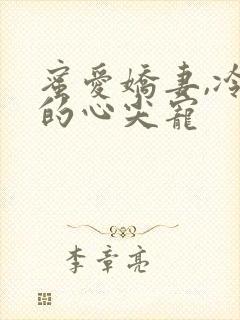 蜜愛嬌妻,冷
的心尖寵
李章亮